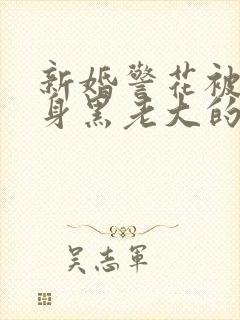 新婚警花被
身黑老大的
吴志軍